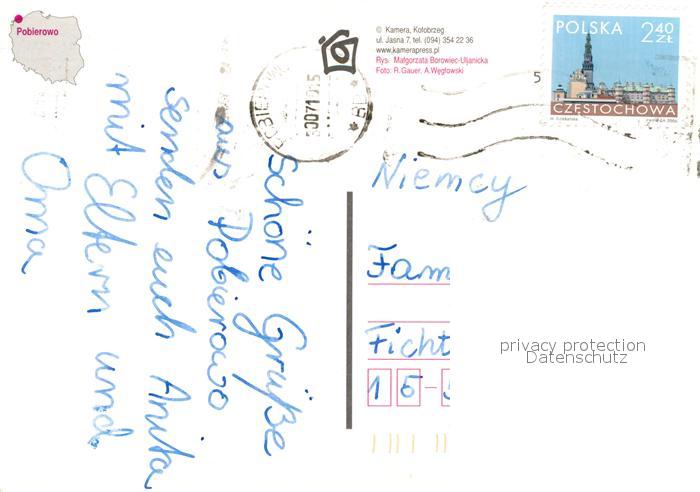 Pobierowo
© Kamera, Kołobrzeg
ul. Jasna 7, tel. (094) 354 22 36
www.kamerapress.pl
Rys: Małgorzata Borowiec-Uljanicka
Foto: R.Gauer, A.Węgłowski
POLSKA 2 40 ZŁ
CZĘSTOCHOWA
5
Schöne Grüße
aus Pobierowo
senden euch Anita
mit Eltern und
Oma
Niemcy
Fam
Ficht
16-
privacy protection
Datenschutz